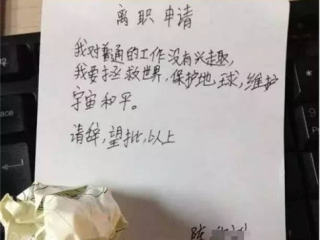 离职申请
我对普通的工作没有兴趣,
我要拯救世界,保护地球,维护
宇宙和平。
请辞,望批,以上
陈